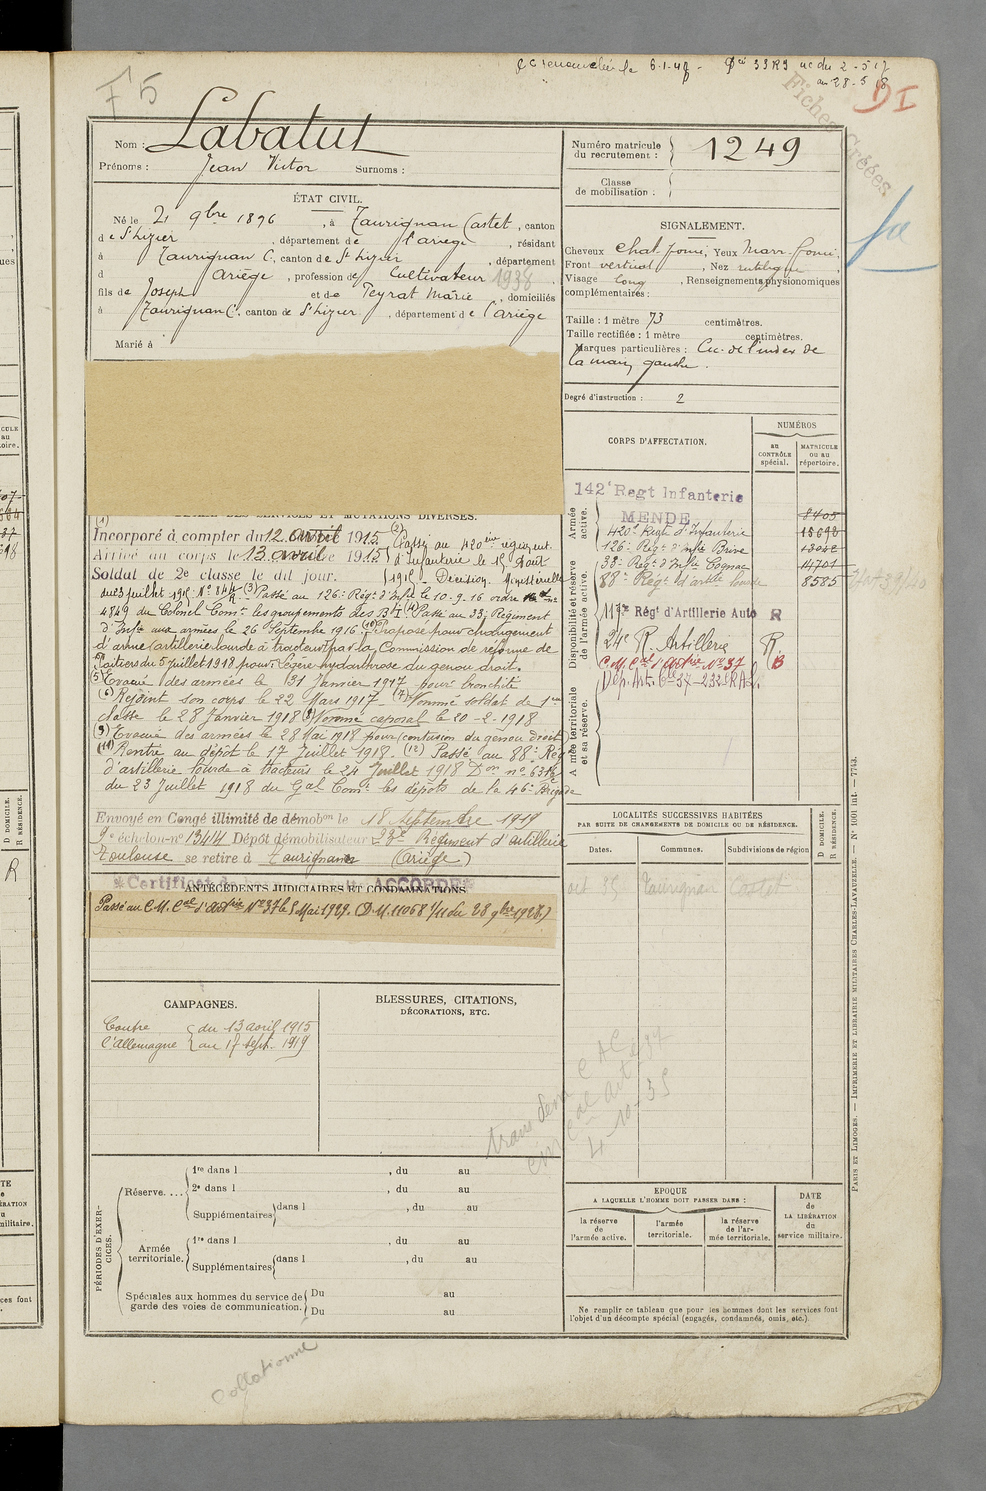 F5
6-1-47
DI
Fiches Créées
Nom : Labatut
Prénoms : Jean Victor Surnoms :
Numéro matricule du recrutement : 1249
Classe de mobilisation :
ÉTAT CIVIL.
Né le 21 9bre 1896, à Taurignan Castet, canton
de St Lizier, département de l'ariège, résidant
à Taurignan C, canton de St Lizier, département
d Ariège, profession de Cultivateur 1938
fils de Joseph et de Peyrat Marie, domiciliés
à Taurignan C. canton de St Lizier, département de l'ariège
Marié à
SIGNALEMENT.
Cheveux chat. foncé, Yeux Marr. foncé,
Front vertical, Nez rectiligne,
Visage long, Renseignements physionomiques
complémentaires :
Taille : 1 mètre 73 centimètres.
Taille rectifiée : 1 mètre centimètres.
Marques particulières : Cic. de l'index de
la main gauche.
Degré d'instruction : 2
CORPS D'AFFECTATION.
NUMÉROS
au CONTRÔLE spécial.
MATRICULE ou au répertoire.
Armée active.
142e Regt Infanterie 8405
MENDE
420e Regt d'Infanterie
126e Regt d'Infie Brive
Disponibilité et réserve de l'armée active.
38e Regt d'Infie Cognac 14701
88e Regt d'artie lourde 8585
117e Régt d'Artillerie Auto R
24e R. Artillerie R
C.M. Cal d'Artie No 37 B
Armée territoriale et sa réserve.
DÉTAIL DES SERVICES ET MUTATIONS DIVERSES.
Incorporé à compter du 12 avril 1915
Arrivé au corps le 13 avril 1915
Soldat de 2e classe le dit jour.
(2) Passé au 420eme régiment
d'infanterie le 15 Août
1915 - Décision Ministérielle
du 23 Juillet 1915 No 844 (3) Passé au 126e Regt d'Infie le 10-9-16 ordre no
4849 du Colonel Comt les groupements des B.I. (4) Passé au 33e Régiment
d'Infie aux armées le 26 Septembre 1916. (10) Proposé pour changement
d'arme (artillerie lourde à tracteurs) par la Commission de réforme de
Poitiers du 5 juillet 1918 pour : Légère hydarthrose du genou droit.
(5) Evacué des armées le 31 Janvier 1917 pour bronchite
(6) Rejoint son corps le 22 Mars 1917 - (7) Nommé soldat de 1ere
classe le 28 Janvier 1918 (8) Nommé caporal le 20-2-1918
(9) Evacué des armées le 28 Mai 1918 pour (contusion du genou droit)
(11) Rentré au dépôt le 17 Juillet 1918. (12) Passé au 88e Reg
d'artillerie lourde à tracteurs le 24 Juillet 1918 Don no 6318
du 23 Juillet 1918 du Gal Comt les dépôts de la 46e Brigade
Envoyé en Congé illimité de démobon le 18 Septembre 1919
9e échelon no 13414 Dépôt démobilisateur 23e Régiment d'artillerie
Toulouse se retire à Taurignan (Ariège)
ACCORDÉ
ANTÉCÉDENTS JUDICIAIRES ET CONDAMNATIONS.
Passé au C.M. Cal d'Artie No 37 le 5 Mai 1929. (D.M. 11068 1/11 du 28 9bre 1928)
CAMPAGNES.
Contre l'Allemagne
du 13 avril 1915
au 17 sept. 1919
BLESSURES, CITATIONS,
DÉCORATIONS, ETC.
LOCALITÉS SUCCESSIVES HABITÉES
PAR SUITE DE CHANGEMENTS DE DOMICILE OU DE RÉSIDENCE.
Dates. Communes. Subdivisions de région
D DOMICILE.
R RÉSIDENCE.
oct. 35 Taurignan Castet
4-10-35
PÉRIODES D'EXERCICES.
Réserve....
1re dans l , du au
2e dans l , du au
Supplémentaires dans l , du au
Armée territoriale.
1re dans l , du au
Supplémentaires dans l , du au
Spéciales aux hommes du service de garde des voies de communication.
Du au
Du au
ÉPOQUE
A LAQUELLE L'HOMME DOIT PASSER DANS :
la réserve de l'armée active.
l'armée territoriale.
la réserve de l'armée territoriale.
DATE de LA LIBÉRATION du service militaire.
Ne remplir ce tableau que pour les hommes dont les services font
l'objet d'un décompte spécial (engagés, condamnés, omis, etc.).
PARIS ET LIMOGES. — IMPRIMERIE ET LIBRAIRIE MILITAIRES CHARLES-LAVAUZELLE. — No 1001 int. — 7743.
Collationné